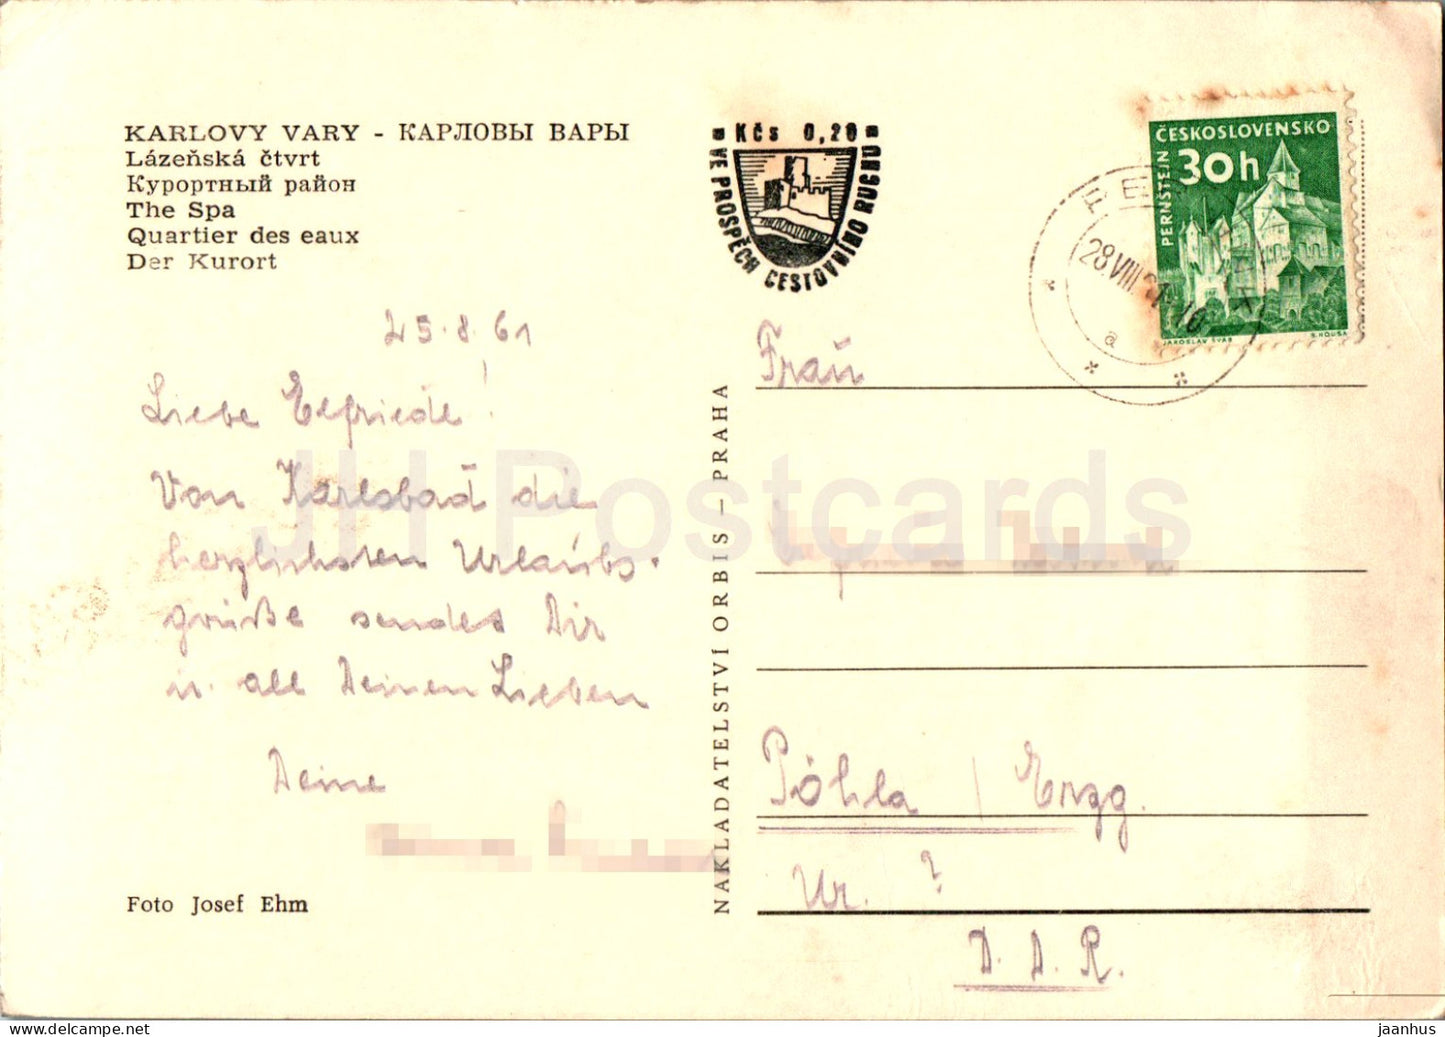 KARLOVY VARY - КАРЛОВЫ ВАРЫ
Lázeňská čtvrt
Курортный район
The Spa
Quartier des eaux
Der Kurort
25.8.61
Liebe Elfriede!
Von Karlsbad die
herzlichsten Urlaubs-
grüße sendet Dir
u. all Deinen Lieben
Deine
Foto Josef Ehm
NAKLADATELSTVÍ ORBIS — PRAHA
Kčs 0,20
VE PROSPĚCH CESTOVNÍHO RUCHU
ČESKOSLOVENSKO
30h
PERNŠTEJN
JAROSLAV ŠVÁB
28 VIII
a
Frau
Pöhla / Erzg.
Nr. ?
D.D.R.
JH Postcards
jaanhus — delcampe.net